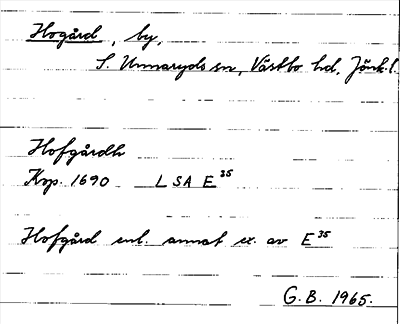 Hogård, by,
S. Unnaryds sn, Västbo hd, Jönk. l.
Hofgårdh
Kop. 1690 LSA E 35
Hofgård enl. annat ex. av E 35
G. B. 1965.